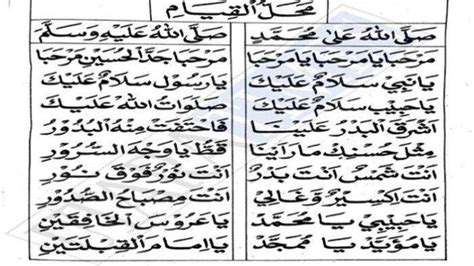 مَحَلُّ الْقِيَامِ
صَلَّى اللهُ عَلَى مُحَمَّدٍ صَلَّى اللهُ عَلَيْهِ وَسَلَّمَ
مَرْحَبًا يَا مَرْحَبًا يَا مَرْحَبَا مَرْحَبًا جَدَّ الْحُسَيْنِ مَرْحَبَا
يَا نَبِيْ سَلَامٌ عَلَيْكَ يَا رَسُوْلْ سَلَامٌ عَلَيْكَ
يَا حَبِيْبْ سَلَامٌ عَلَيْكَ صَلَوَاتُ اللهِ عَلَيْكَ
اَشْرَقَ الْبَدْرُ عَلَيْنَا فَاخْتَفَتْ مِنْهُ الْبُدُوْرُ
مِثْلَ حُسْنِكَ مَا رَاَيْنَا قَطُّ يَا وَجْهَ السُّرُوْرِ
اَنْتَ شَمْسٌ اَنْتَ بَدْرٌ اَنْتَ نُوْرٌ فَوْقَ نُوْرٍ
اَنْتَ اِكْسِيْرٌ وَغَالِيْ اَنْتَ مِصْبَاحُ الصُّدُوْرِ
يَا حَبِيْبِيْ يَا مُحَمَّدْ يَا عَرُوْسَ الْخَافِقَيْنِ
يَا مُؤَيَّدْ يَا مُمَجَّدْ يَا اِمَامَ الْقِبْلَتَيْنِ